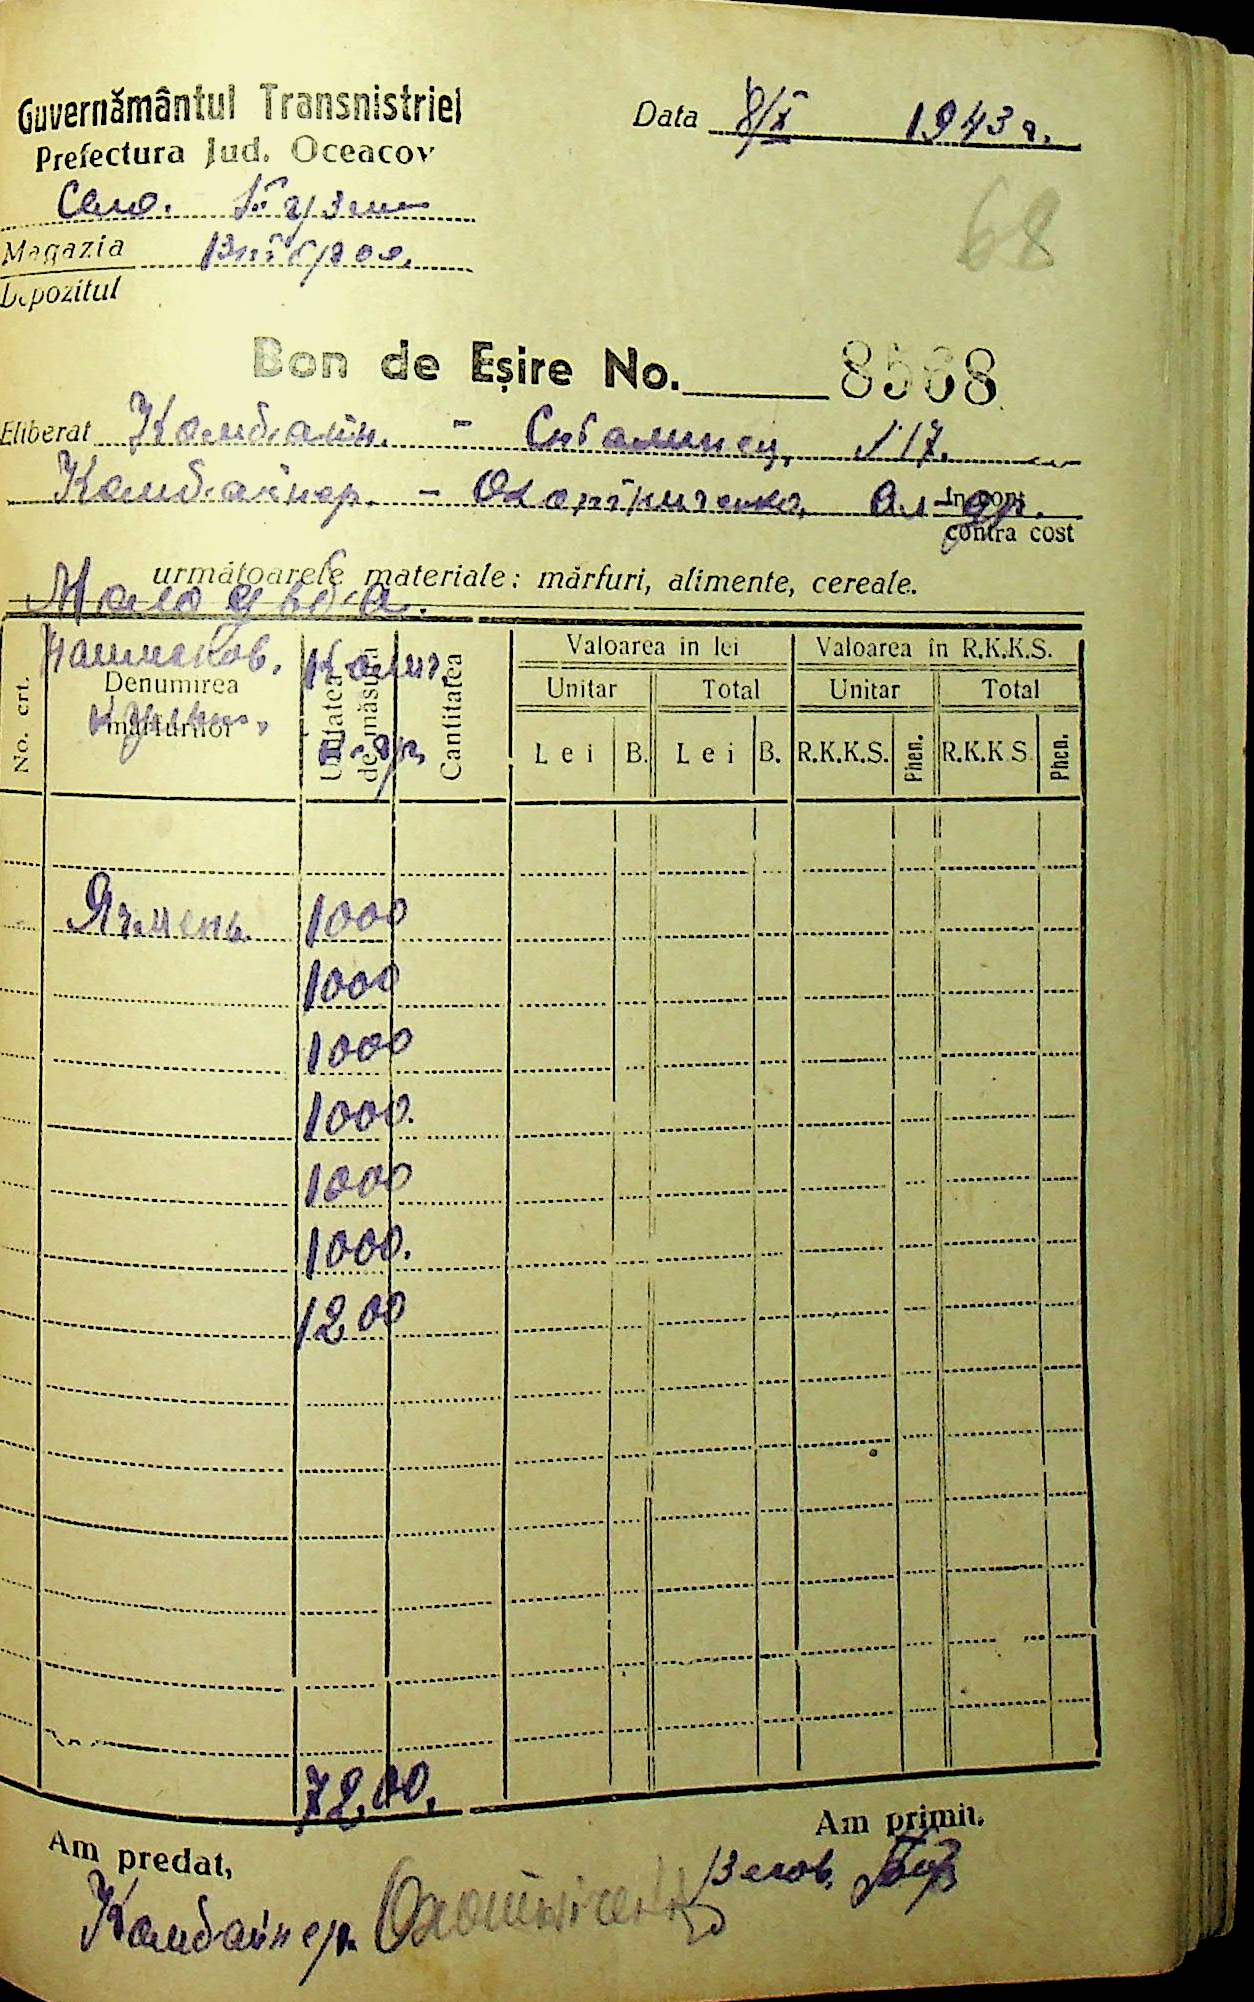 Guvernământul Transnistriei
Data 8/X 1943 г.
Prefectura Jud. Oceacov
Село.
68
Magazia
Depozitul
Bon de Eșire No. 8568
Eliberat Комбайн. - №17.
Комбайнер. - Ал-др.
In cont
contra cost
următoarele materiale: mărfuri, alimente, cereale.
Молотьба.
No. crt.
Denumirea mărfurilor
Unitatea de măsura
Cantitatea
Valoarea in lei
Valoarea în R.K.K.S.
Unitar Total Unitar Total
Lei B. Lei B. R.K.K.S. Phen. R.K.K.S. Phen.
Ячмень 1000
1000
1000
1000.
1000
1000.
1200
7200.
Am predat,
Am primit.
Комбайнер.